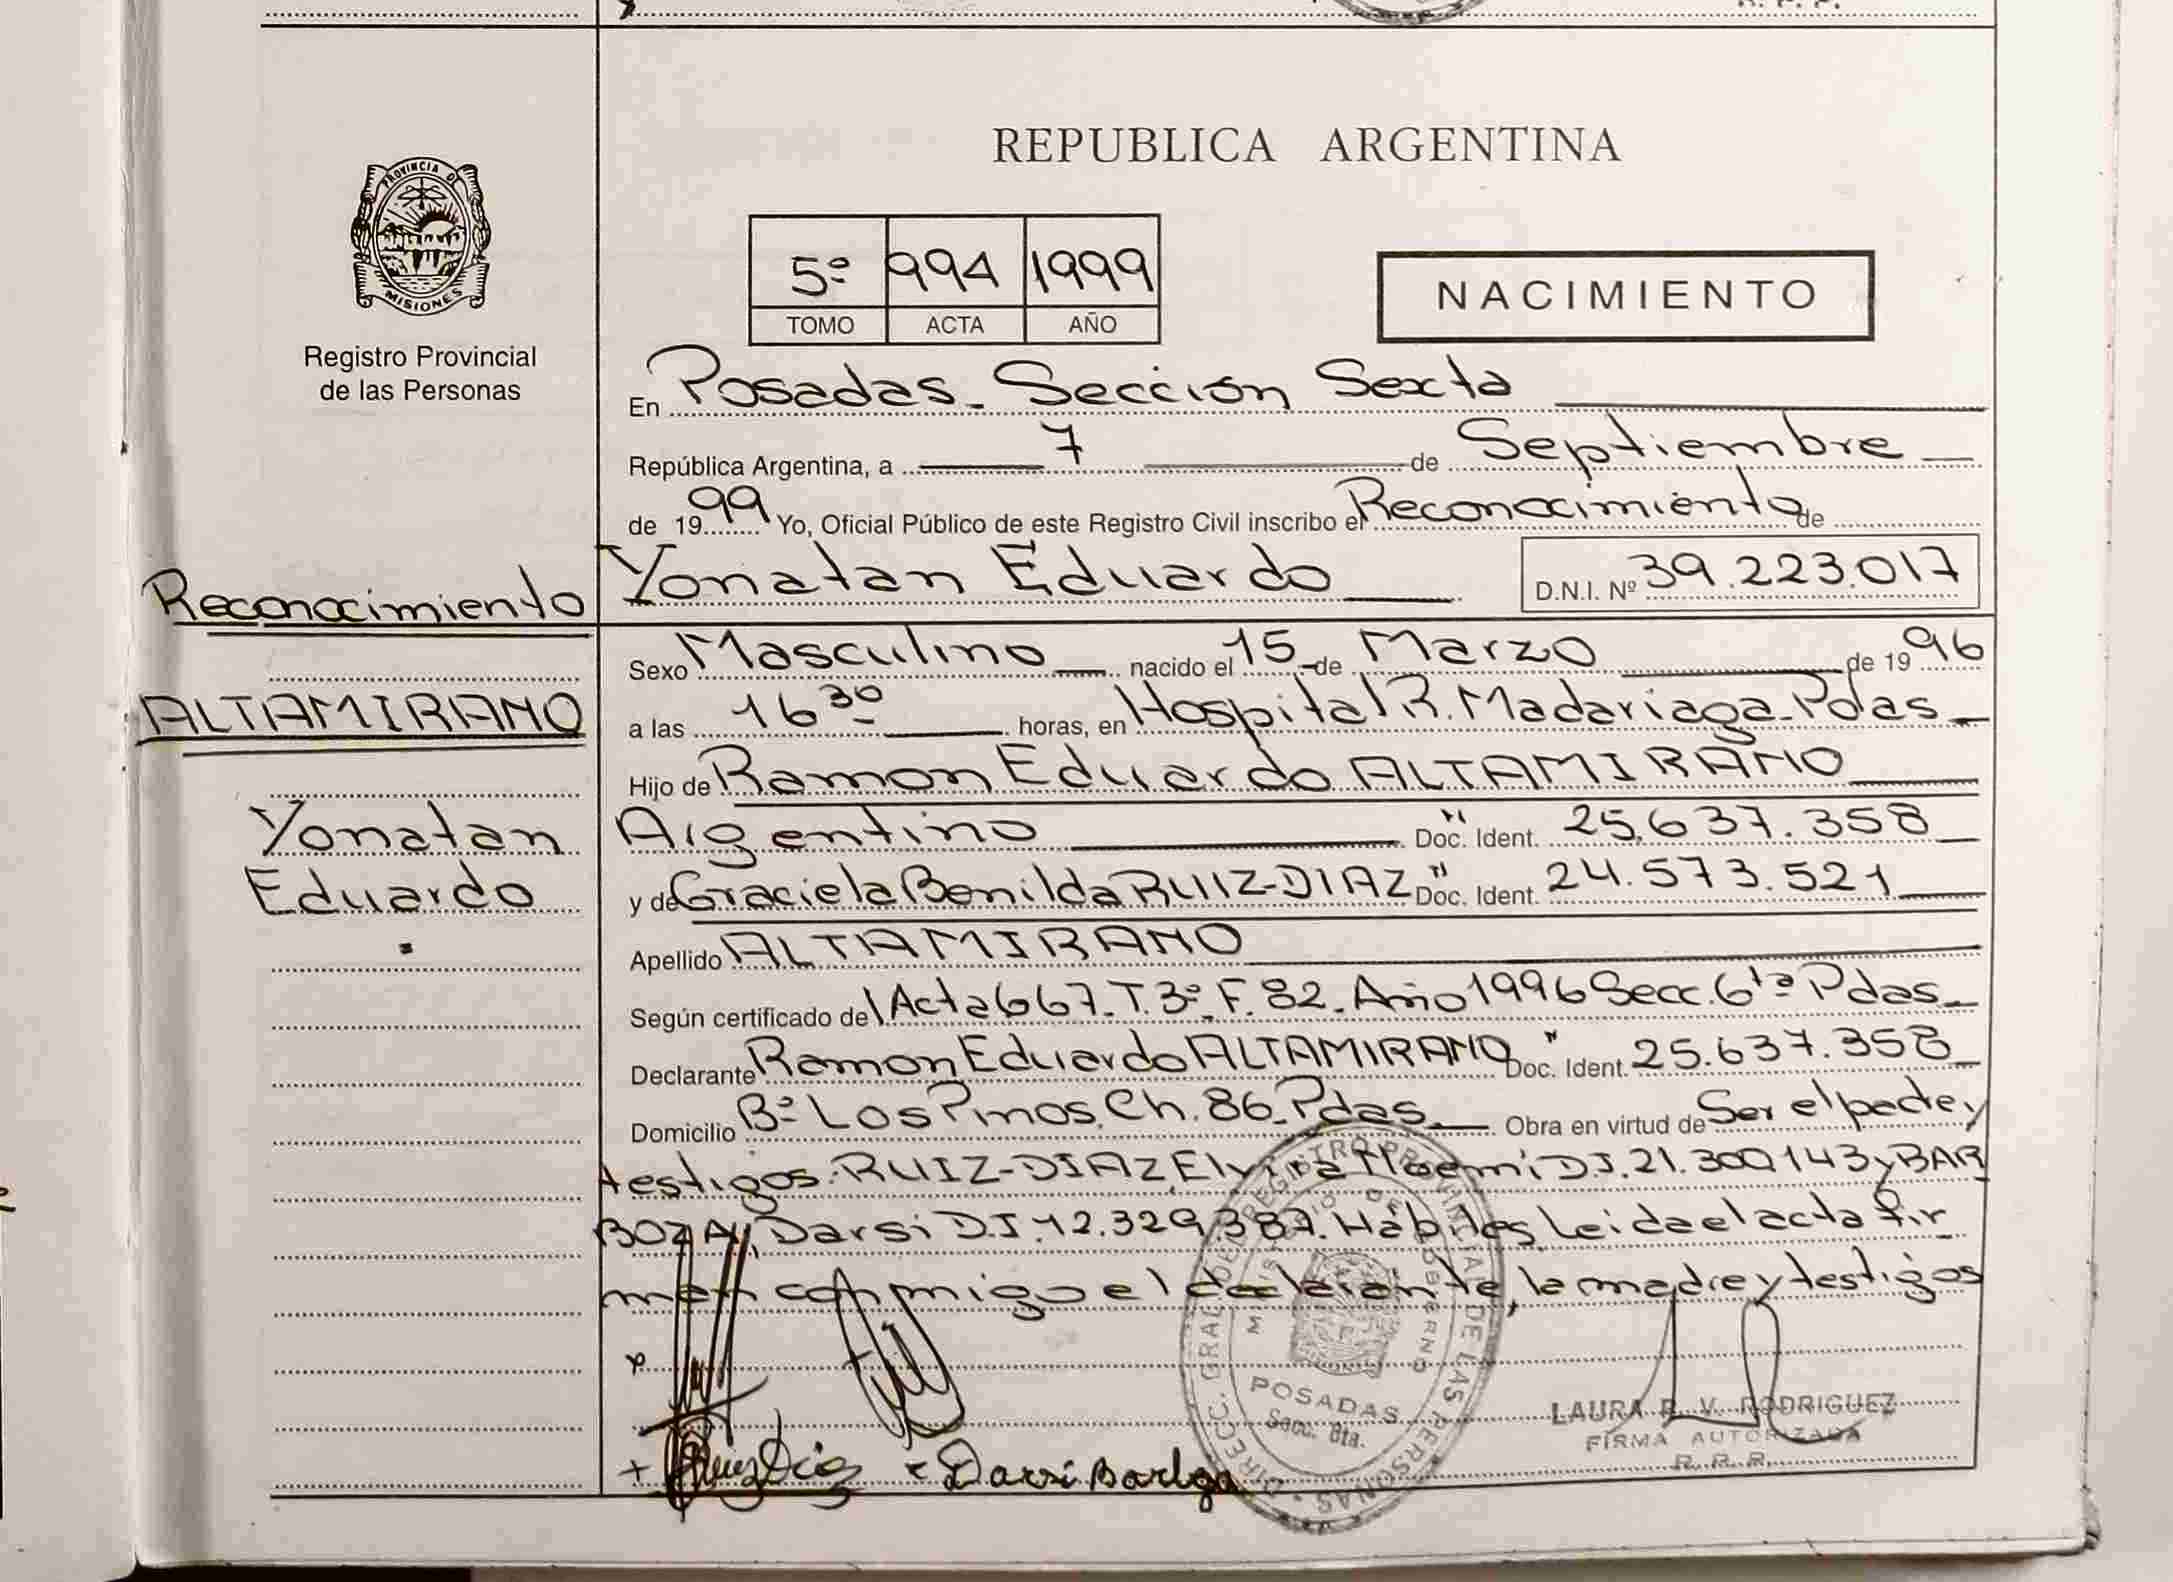 REPUBLICA ARGENTINA
PROVINCIA DE
MISIONES
Registro Provincial
de las Personas
5º 994 1999
TOMO ACTA AÑO
NACIMIENTO
En Posadas - Sección Sexta
República Argentina, a 7 de Septiembre
de 1999 Yo, Oficial Público de este Registro Civil inscribo el Reconocimiento de
Yonatan Eduardo D.N.I. Nº 39.223.017
Reconocimiento
ALTAMIRANO
Yonatan
Eduardo
Sexo Masculino nacido el 15 de Marzo de 1996
a las 16 30 horas, en Hospital R. Madariaga - Pdas
Hijo de Ramon Eduardo ALTAMIRANO
Argentino Doc. Ident. 25.637.358
y de Graciela Benilda RUIZ-DIAZ Doc. Ident. 24.573.521
Apellido ALTAMIRANO
Según certificado del Acta 667 - T. 3º - F. 82 - Año 1996 Secc. 6ta Pdas
Declarante Ramon Eduardo ALTAMIRANO Doc. Ident. 25.637.358
Domicilio Bº Los Pinos Ch. 86 - Pdas Obra en virtud de Ser el padre y
testigos: RUIZ-DIAZ, Elvira Noemi D.I. 21.300.143 y BAR
BOZA, Darsi D.I. 12.329.387. Hábiles, Leida el acta fir
man conmigo el declarante, la madre y testigos
DIRECC. GRAL. DE REGISTRO PROVINCIAL DE LAS PERSONAS
MINISTERIO DE GOBIERNO
POSADAS
Secc. 6ta.
LAURA R. V. RODRIGUEZ
FIRMA AUTORIZADA
R. P. P.
Ruiz Diaz
Darsi Barboza